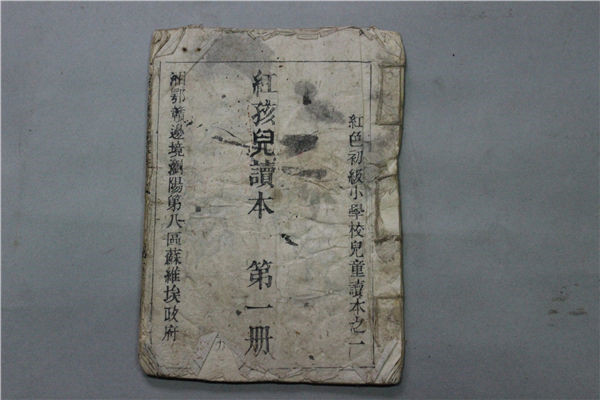 紅色初級小學校兒童讀本之一
紅孩兒讀本 第一册
湘鄂贛邊境瀏陽第八區蘇維埃政府